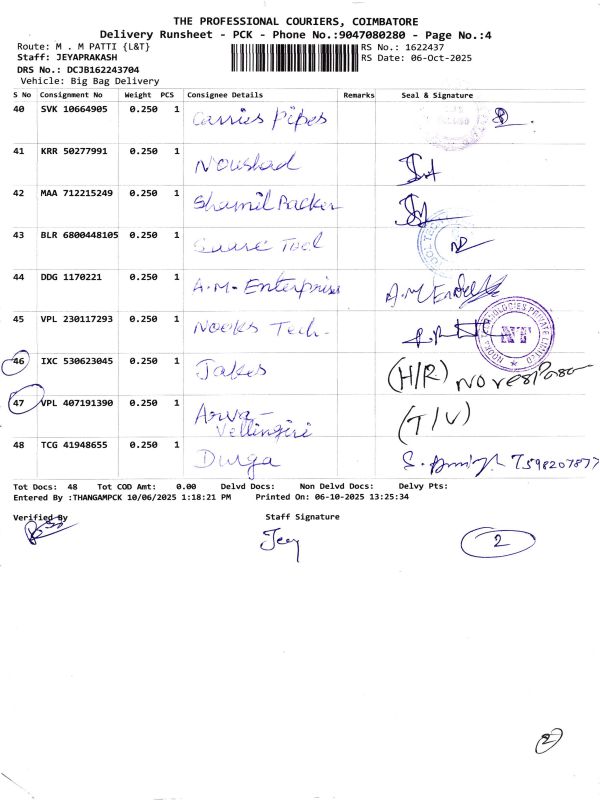 THE PROFESSIONAL COURIERS, COIMBATORE
Delivery Runsheet - PCK - Phone No.:9047080280 - Page No.:4
Route: M . M PATTI {L&T}
RS No.: 1622437
Staff: JEYAPRAKASH
RS Date: 06-Oct-2025
DRS No.: DCJB162243704
Vehicle: Big Bag Delivery
S No Consignment No Weight PCS Consignee Details Remarks Seal & Signature
40 SVK 10664905 0.250 1 Carries Pipes
41 KRR 50277991 0.250 1 Noushad
42 MAA 712215249 0.250 1 Shamil Packer
43 BLR 6800448105 0.250 1 Tool
44 DDG 1170221 0.250 1 A.M. Enterprises
45 VPL 230117293 0.250 1 Nooks Tech.
NT
46 IXC 530623045 1 0.250 Jakes (H/R) NO
47 VPL 407191390 0.250 1 Arva - (T/V)
Vellingiri
48 TCG 41948655 0.250 1 Durga S. 7598207877
Tot Docs: 48 Tot COD Amt: 0.00 Delvd Docs: Non Delvd Docs: Delvy Pts:
Entered By :THANGAMPCK 10/06/2025 1:18:21 PM Printed On: 06-10-2025 13:25:34
Verified By Staff Signature
Jey 2
2